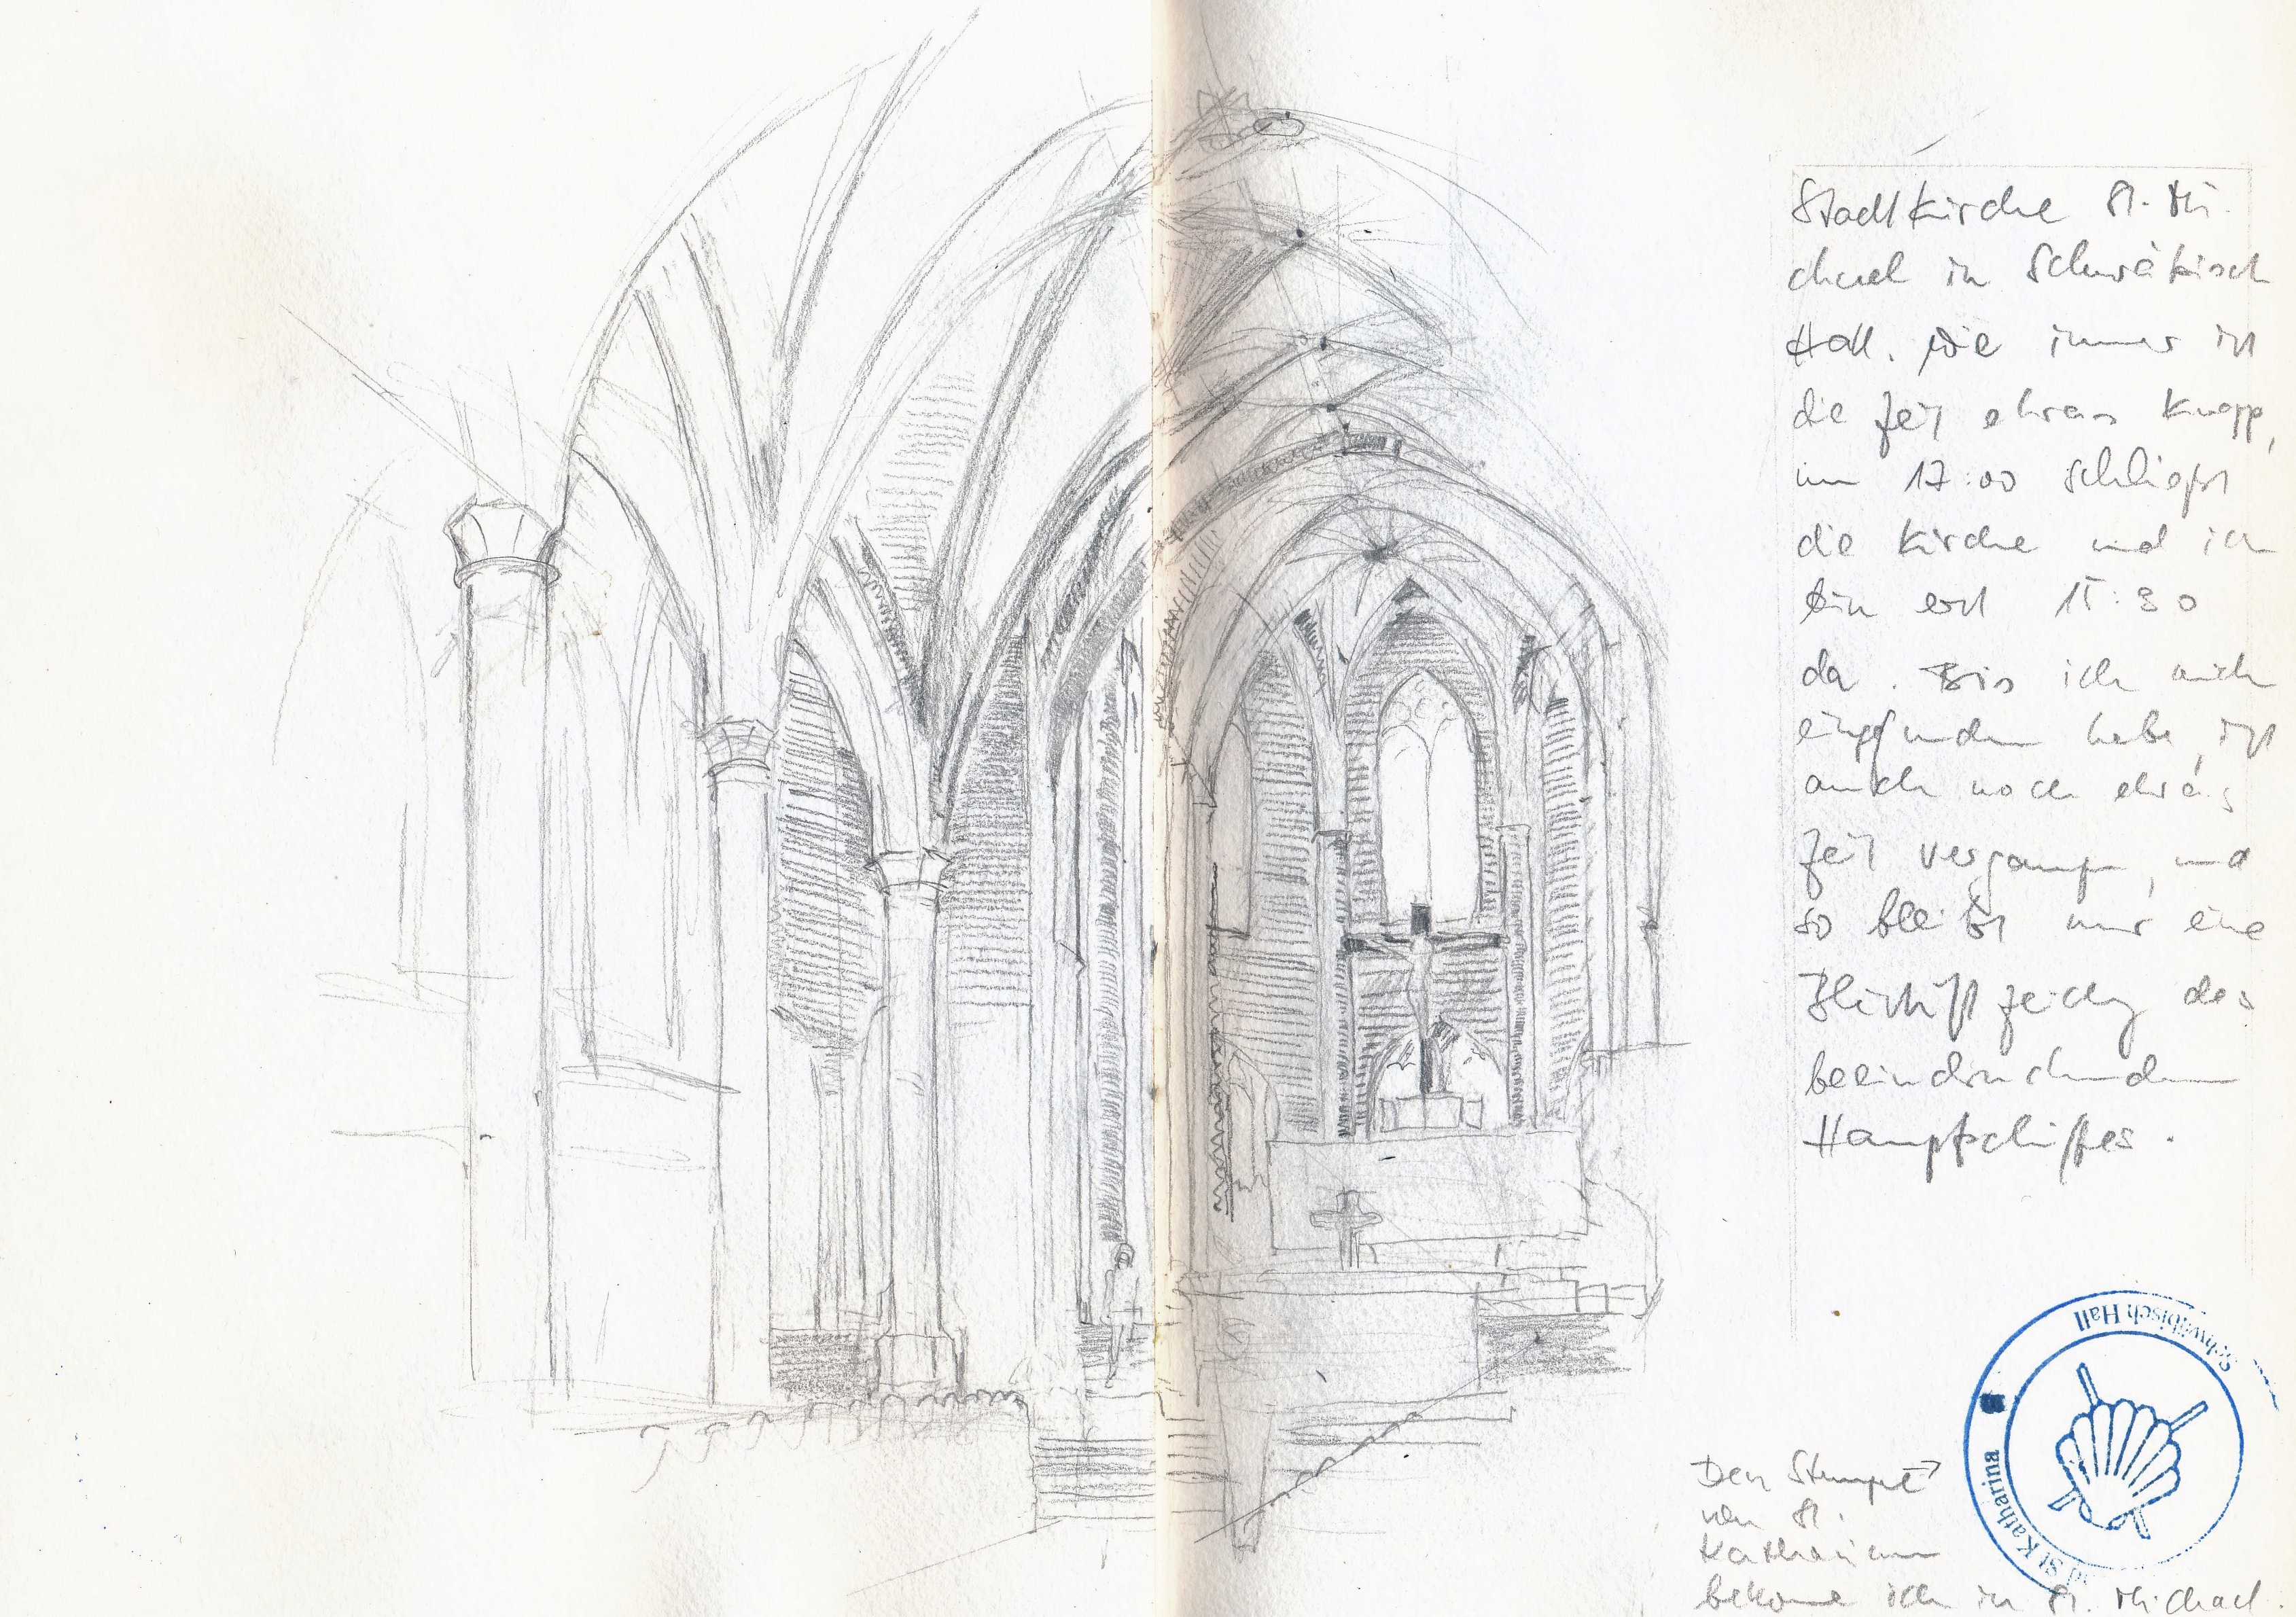 Stadtkirche St. Mi-
chael in Schwäbisch
Hall. Wie immer ist
die Zeit etwas knapp,
um 17:00 schließt
die Kirche und ich
bin erst 15:30
da. Bis ich mich
eingefunden habe, ist
auch noch etwas
Zeit vergangen, und
so bleibt nur eine
Bleistiftzeichng des
beeindruckenden
Hauptschiffes.
Schwäbisch Hall
St Katharina
Den Stempel →
von St.
Katharina
bekome ich in St. Michael.